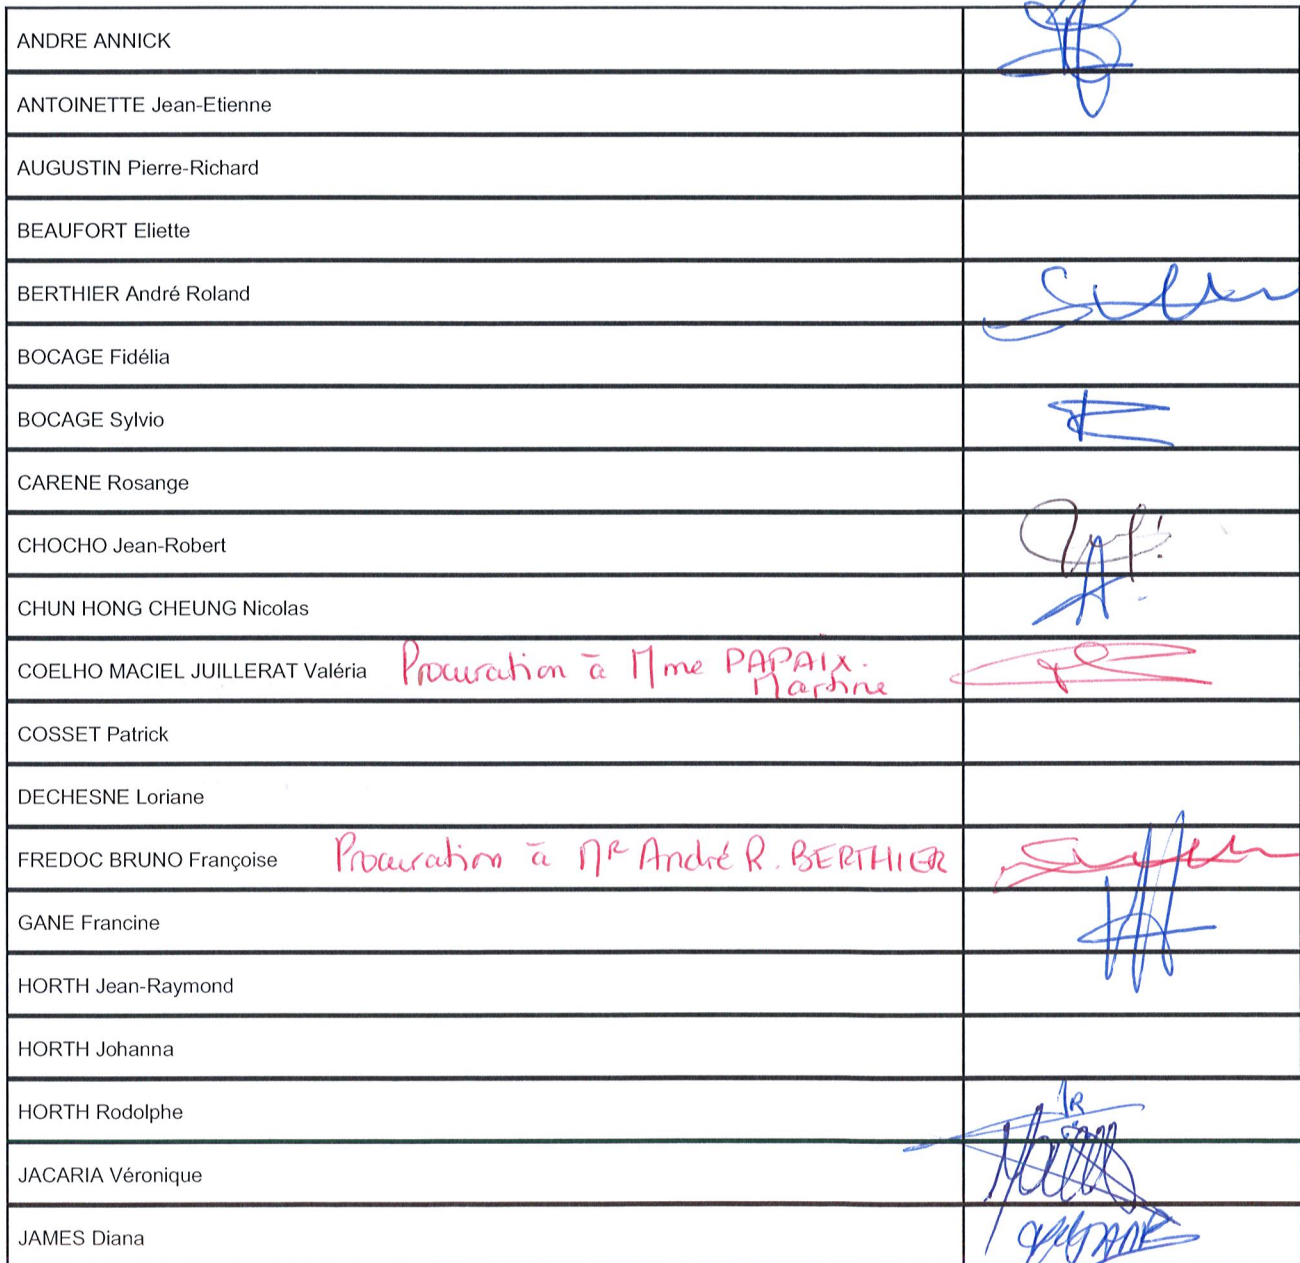 ANDRE ANNICK
ANTOINETTE Jean-Etienne
AUGUSTIN Pierre-Richard
BEAUFORT Eliette
BERTHIER André Roland
BOCAGE Fidélia
BOCAGE Sylvio
CARENE Rosange
CHOCHO Jean-Robert
CHUN HONG CHEUNG Nicolas
COELHO MACIEL JUILLERAT Valéria Procuration à Mme PAPAIX.
Martine
COSSET Patrick
DECHESNE Loriane
FREDOC BRUNO Françoise Procuration à Mr André R. BERTHIER
GANE Francine
HORTH Jean-Raymond
HORTH Johanna
HORTH Rodolphe
JACARIA Véronique
JAMES Diana